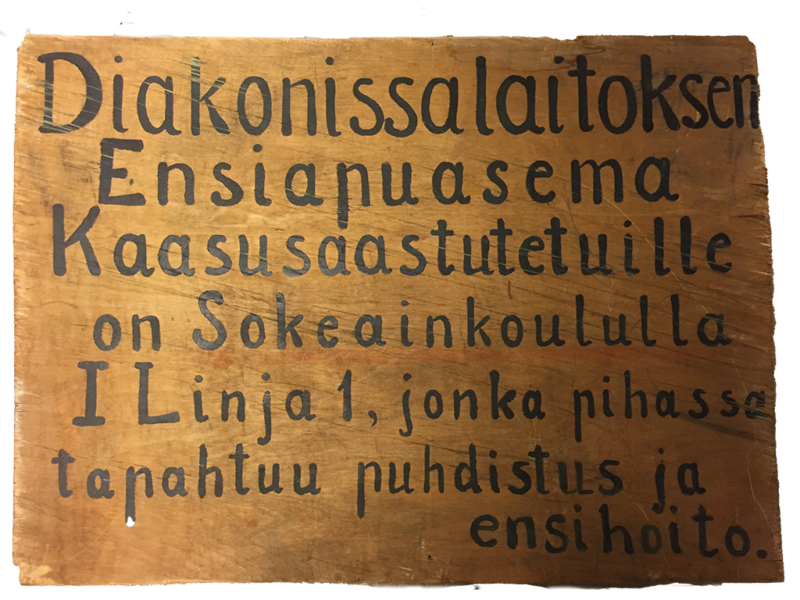 Diakonissalaitoksen
Ensiapuasema
Kaasusaastutetuille
on Sokeainkoululla
I Linja 1, jonka pihassa
tapahtuu puhdistus ja
ensihoito.